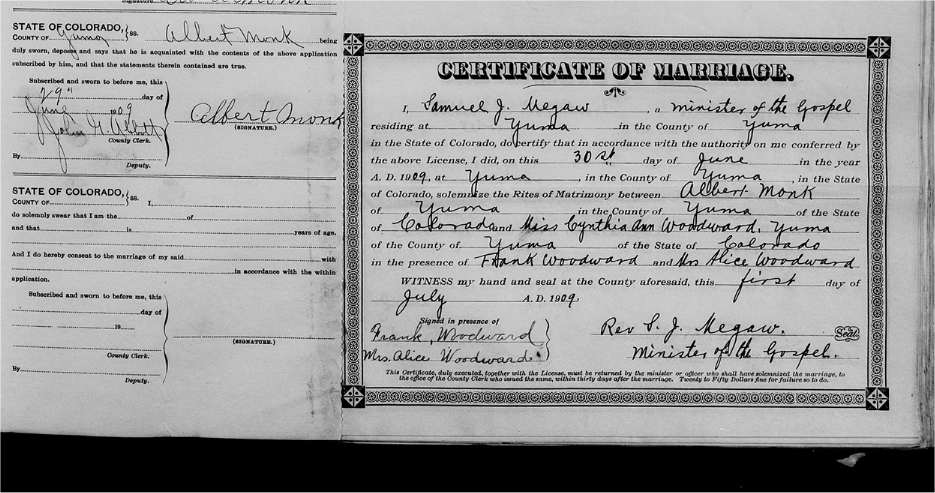 Signature
STATE OF COLORADO,
COUNTY OF Yuma } ss. Albert Monk being
duly sworn, deposes and says that he is acquainted with the contents of the above application
subscribed by him, and that the statements therein contained are true.
Subscribed and sworn to before me, this
29" day of
June 1909
John G. Abbott
County Clerk.
By
Deputy.
Albert Monk
(SIGNATURE.)
STATE OF COLORADO,
COUNTY OF } ss. I,
do solemnly swear that I am the of
and that is years of age.
And I do hereby consent to the marriage of my said with
in accordance with the within
application.
Subscribed and sworn to before me, this
day of
19
County Clerk.
By
Deputy.
(SIGNATURE.)
CERTIFICATE OF MARRIAGE.
I, Samuel J. Megaw, a minister of the Gospel
residing at Yuma in the County of Yuma
in the State of Colorado, do certify that in accordance with the authority on me conferred by
the above License, I did, on this 30st day of June in the year
A. D. 1909, at Yuma, in the County of Yuma, in the State
of Colorado, solemnize the Rites of Matrimony between Albert Monk
of Yuma in the County of Yuma of the State
of Colorado and Miss Cynthia Ann Woodward, Yuma
of the County of Yuma of the State of Colorado
in the presence of Frank Woodward and Mrs Alice Woodward
WITNESS my hand and seal at the County aforesaid, this first day of
July A. D. 1909.
Signed in presence of
Frank, Woodward
Mrs. Alice Woodward.
Rev S. J. Megaw. Seal
Minister of the Gospel.
This Certificate, duly executed, together with the License, must be returned by the minister or officer who shall have solemnized the marriage, to
the office of the County Clerk who issued the same, within thirty days after the marriage. Twenty to Fifty Dollars fine for failure so to do.